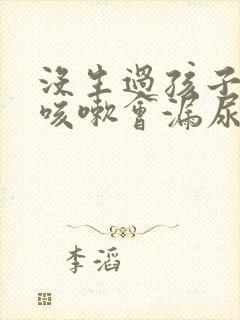 没生過孩子
咳嗽會漏尿
李滔